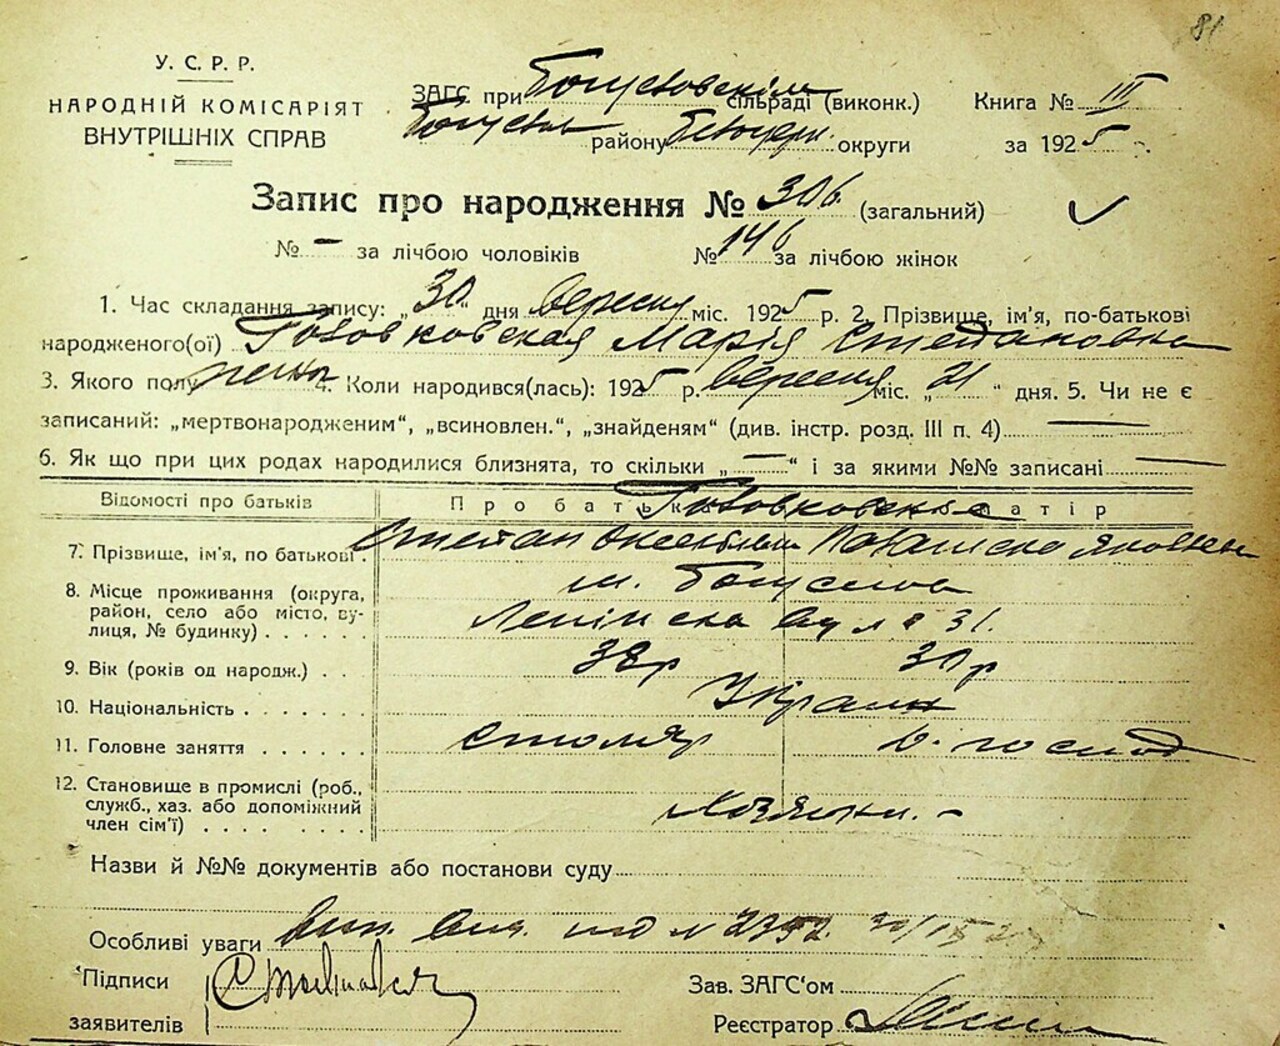 81
У. С. Р. Р.
НАРОДНІЙ КОМІСАРІЯТ
ВНУТРІШНІХ СПРАВ
ЗАГС при Богуславскім сільраді (виконк.) Книга № III
району Білоцерк. округи за 1925 р.
Запис про народження № 306 (загальний)
№ — за лічбою чоловіків № 146 за лічбою жінок
1. Час складання запису: „30“ дня вересня міс. 1925 р. 2. Прізвище, ім'я, по-батькові
народженого(ої) Марія Степановна
3. Якого полу жіны 4. Коли народився(лась): 1925 р. вересня міс. „21“ дня. 5. Чи не є
записаний: „мертвонародженим“, „всиновлен.“, „знайденям“ (див. інстр. розд. III п. 4) —
6. Як що при цих родах народилися близнята, то скільки „—“ і за якими №№ записані —
Відомості про батьків Про батька Про матір
7. Прізвище, ім'я, по батькові. Степан Яковлевн
8. Місце проживання (округа, м. Богуслав
район, село або місто, ву-
лиця, № будинку) . . . . . . Ленінска вул 31.
9. Вік (років од народж.) . . . 38р 30р
10. Національність . . . . . . . Украин
11. Головне заняття . . . . . . столяр д. господ
12. Становище в промислі (роб.,
служб., хаз. або допоміжний Хозяени. –
член сім'ї) . . . . . . . . .
Назви й №№ документів або постанови суду
Особливі уваги вип. вид. № 2392
Підписи Зав. ЗАГС'ом
заявителів Реєстратор